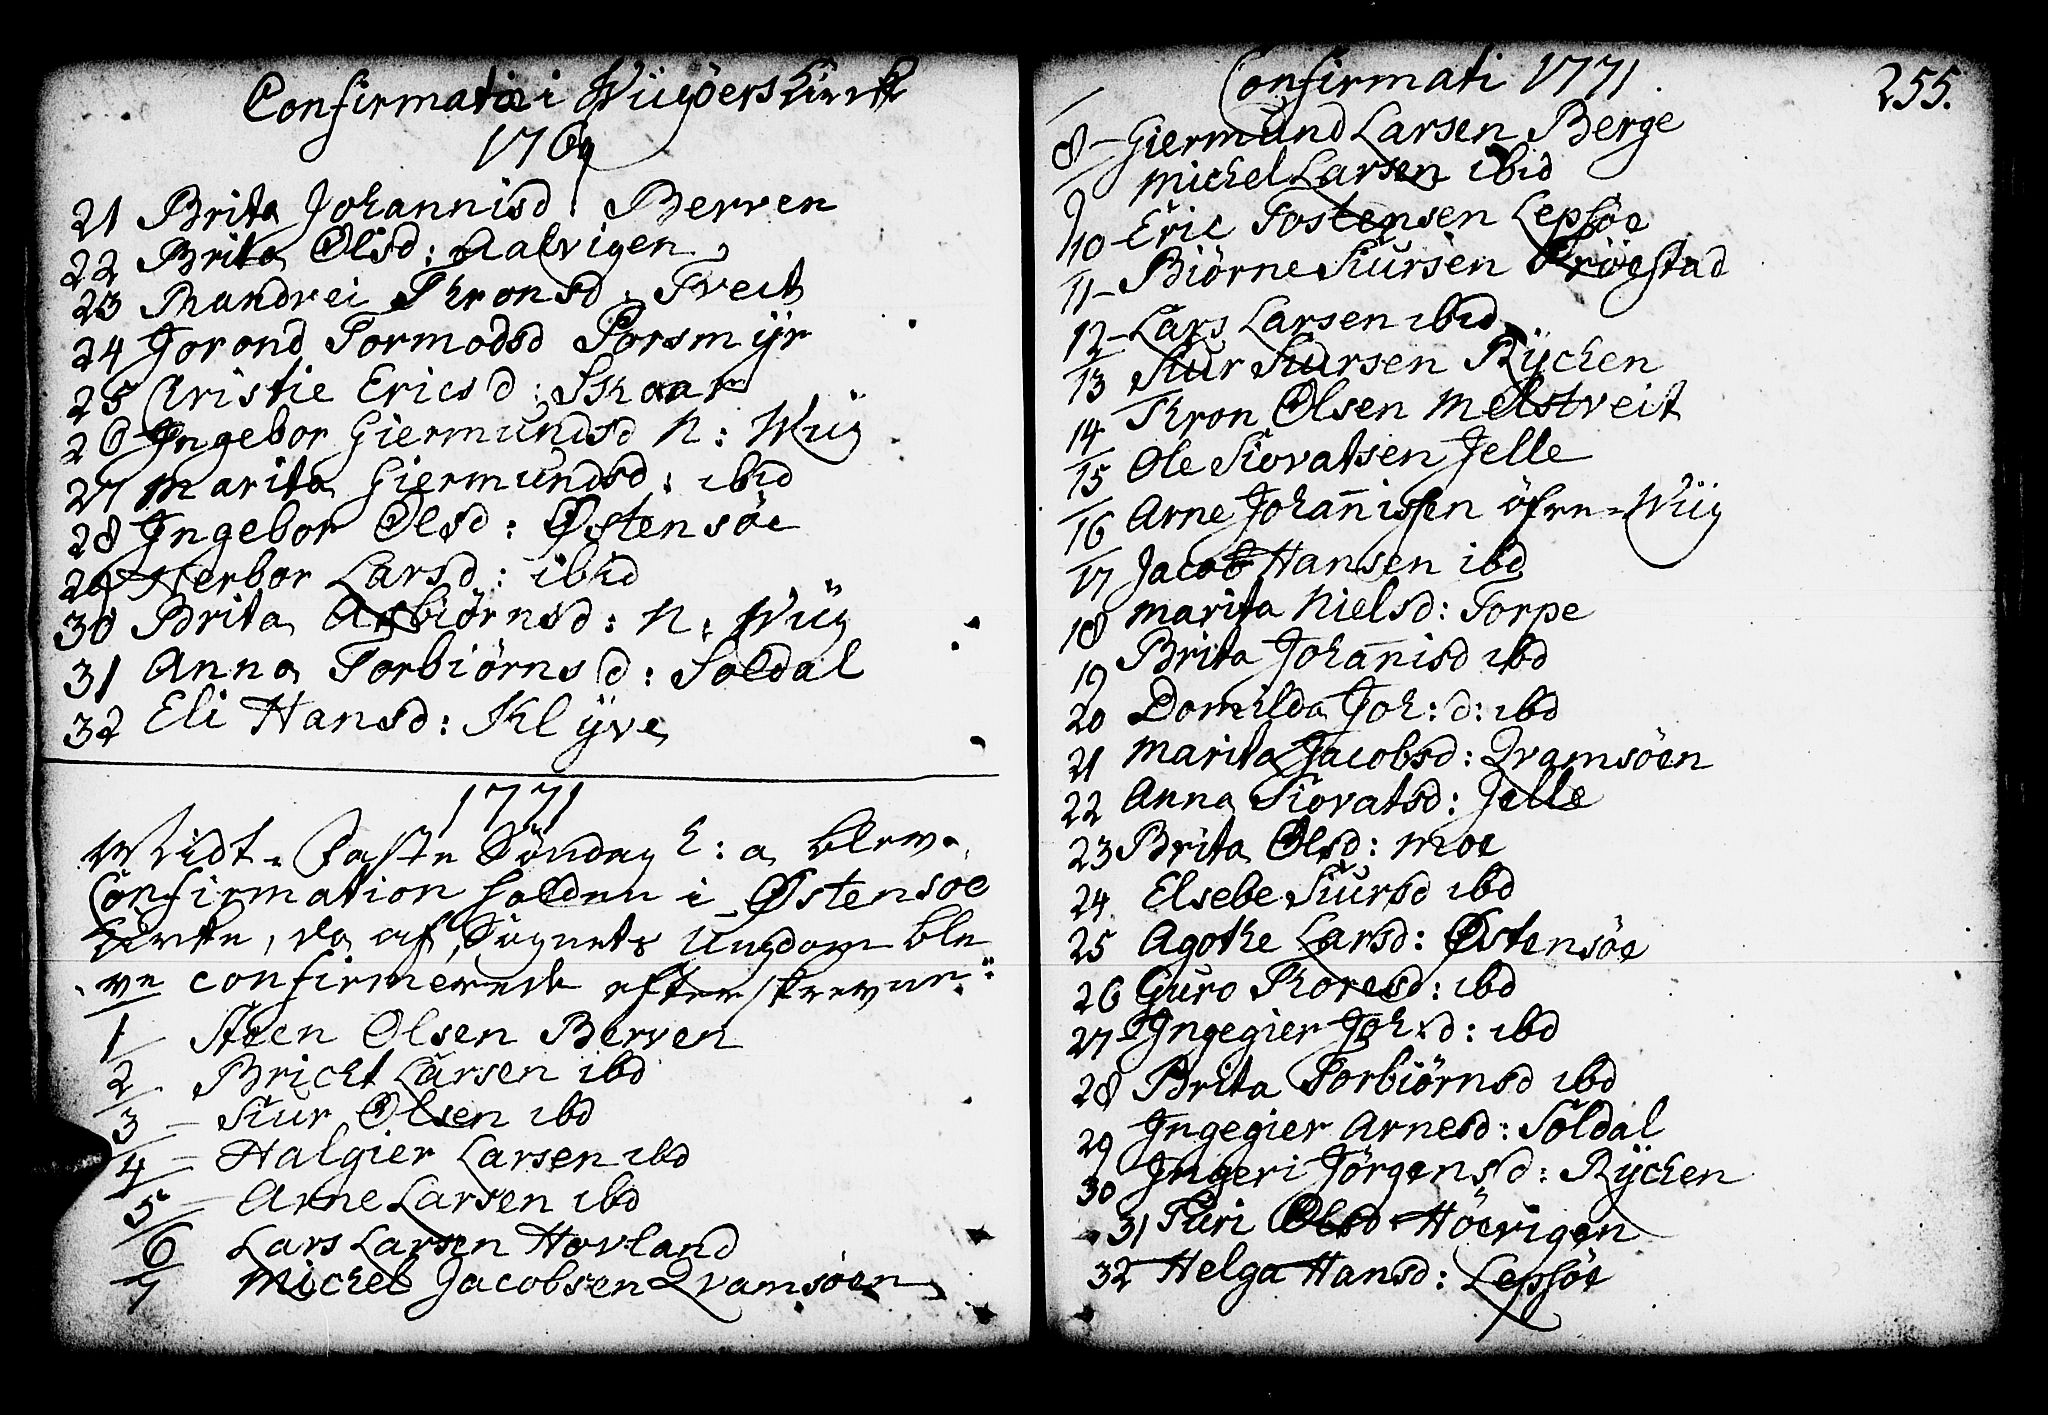 Confirmatio i Wüigöers Kirke
1769
21 Brita Johannisd: Berven
22 Brita Olsd: Aalvigen
23 Randvei Thronsd. Tveit
24 Jorond Tormodsd Porsmÿr
25 Cristie Ericsd: Skaar
26 Ingebor Giermundsd N: Wiig
27 Marita Giermundsd: ibid
28 Ingebor Olsd: Østensöe
29 Herbor Larsd: ibid
30 Brita Asbiörnsd: N: Wiig
31 Anna Torbiörnsd: Soldal
32 Eli Hansd: Klÿve
1771
Midt-Faste Söndag h: a blew
Confirmation holden i Østensöe
Kirke, da af Sognets Ungdom ble
ve confirmerede efterskrevne:
1 Steen Olsen Berven
2 Bricht Larsen ibd
3 Siur Olsen ibd
4 Halgier Larsen ibd
5 Arne Larsen ibd
6 Lars Larsen Hovland
7 Michel Jacobsen Qvamsöen
Confirmati 1771. 255.
8 Giermund Larsen Berge
9 Michel Larsen ibid
10 Eric Tostensen Lepsöe
11 Biörne Siursen Tröestad
12 Lars Larsen ibid
13 Siur Siursen Rÿchen
14 Thron Olsen Melstveit
15 Ole Siovatsen Jelle
16 Arne Johan̄issen öfre-Wiig
17 Jacob Hansen ibd
18 Marita Nielsd: Torpe
19 Brita Johan̄isd ibd
20 Domilda Joh: d: ibd
21 Marita Jacobsd: Qvamsöen
22 Anna Siovatsd: Jelle
23 Brita Olsd: Moe
24 Elsebe Siursd ibd
25 Agothe Larsd: Østensöe
26 Guro Thoresd: ibd
27 Ingegier Joh:d: ibd
28 Brita Torbiörnsd ibd
29 Ingegier Arnesd: Soldal
30 Ingeri Jörgensd: Rÿchen
31 Turi Olsd Höevigen
32 Helga Hansd: Lepsöe